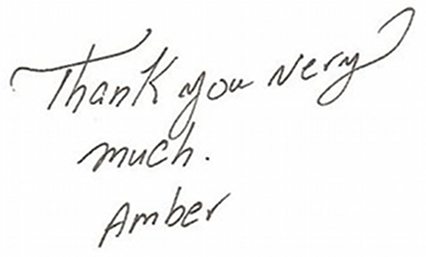 Thank you very
much.
Amber